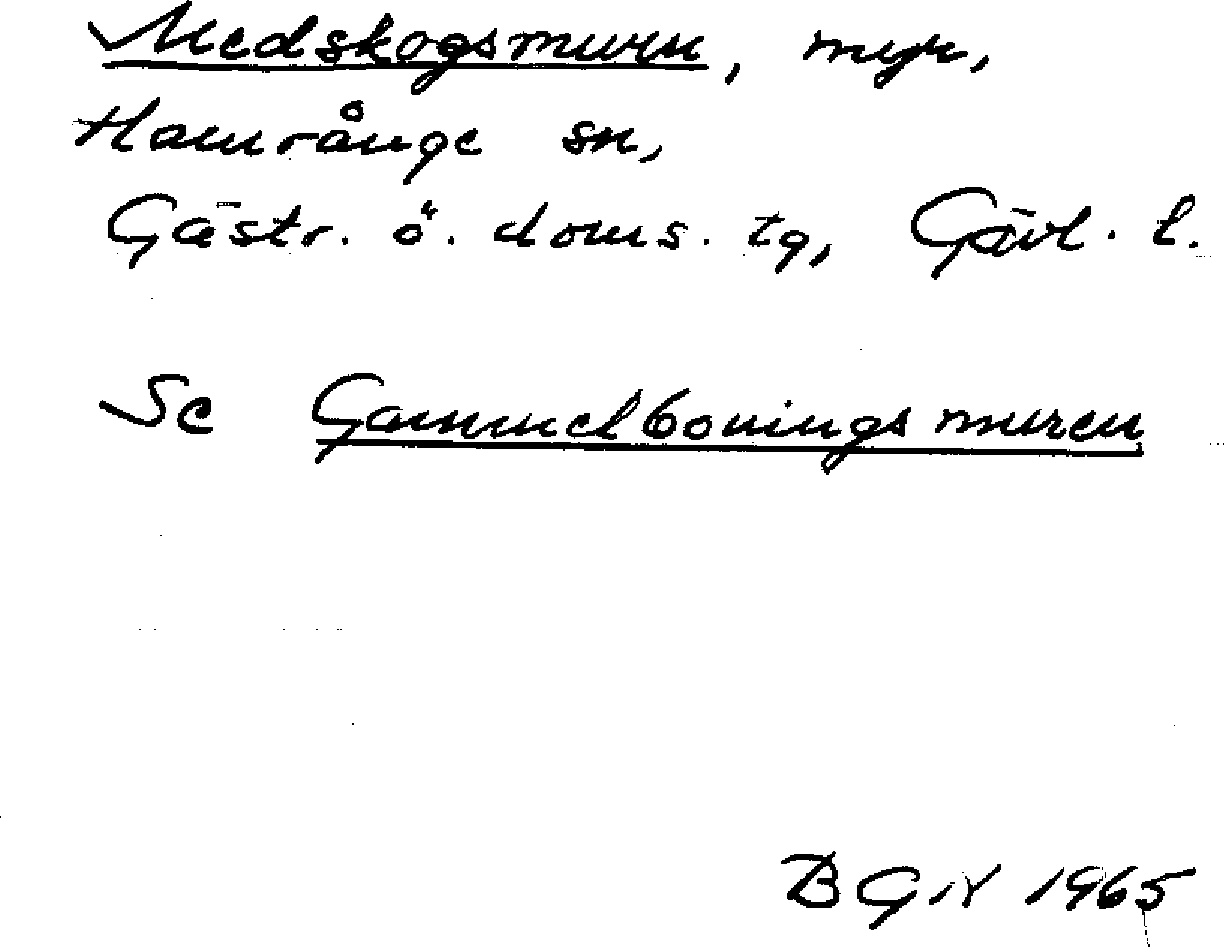 Medskogsmurn, myr,
Hamrånge sn,
Gästr. ö. doms. tg, Gävl. l.
Se Gammelboningsmuren
BGN 1965